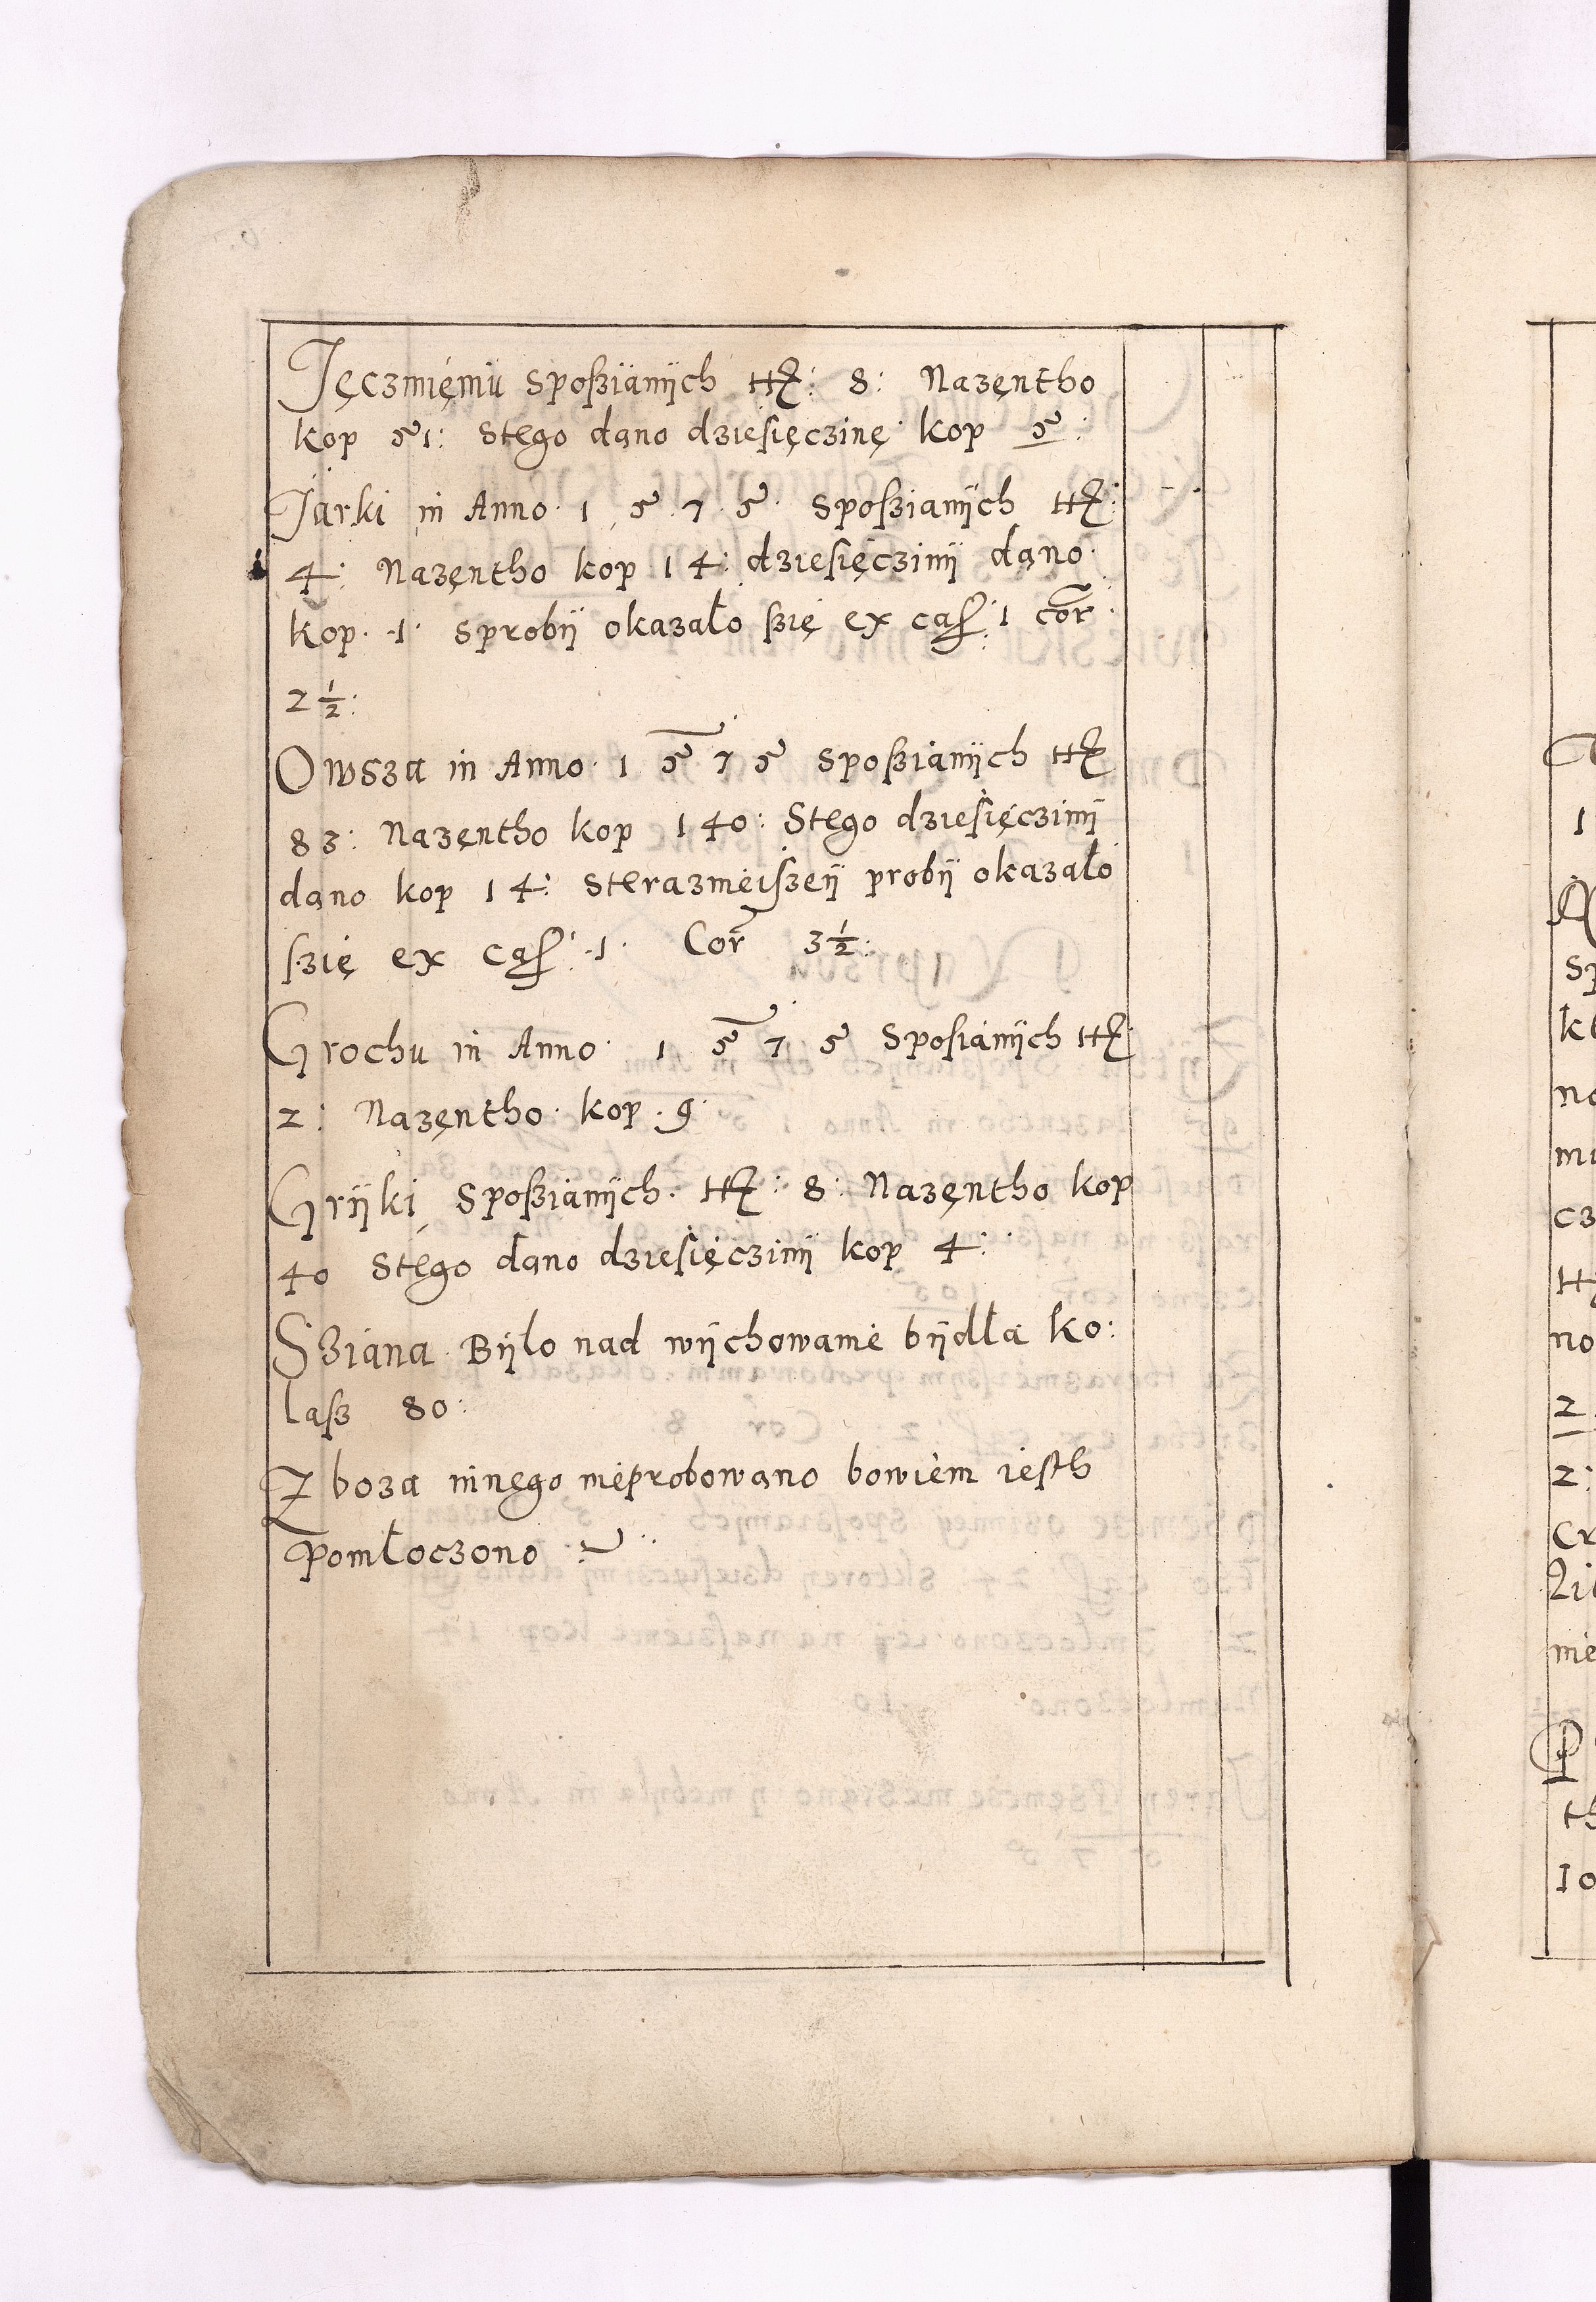 Jęczmięniu sposzianÿch ttꝝ: 8: Nazęntho
kop 51: Stego dano dziesięczinę kop 5:
Jarki in Anno 1575 sposzianÿch ttꝝ:
4: Nazęntho kop 14: dziesięczinÿ dano
kop. 1. sprobÿ okazało szię ex cas: 1 cor
2 1/2:
Owsza in Anno 1575 sposzianÿch ttꝝ
83: Nazęntho kop 140: Stego dziesięczinÿ
dano kop 14: Sterazmeiszeÿ probÿ okazało
szię ex cas: 1. Cor 3 1/2:
Grochu in Anno 1575 Sposianÿch ttꝝ
2: Nazęntho kop. 9.
Grÿki Sposzianÿch ttꝝ: 8: Nazęntho kop
40 Stego dano dziesięczinÿ kop 4:
Sziana Bÿło nad wÿchowanie bÿdła ko:
lasz 80:
Zboza innego nieprobowano bowiem iesth
pomłoczono